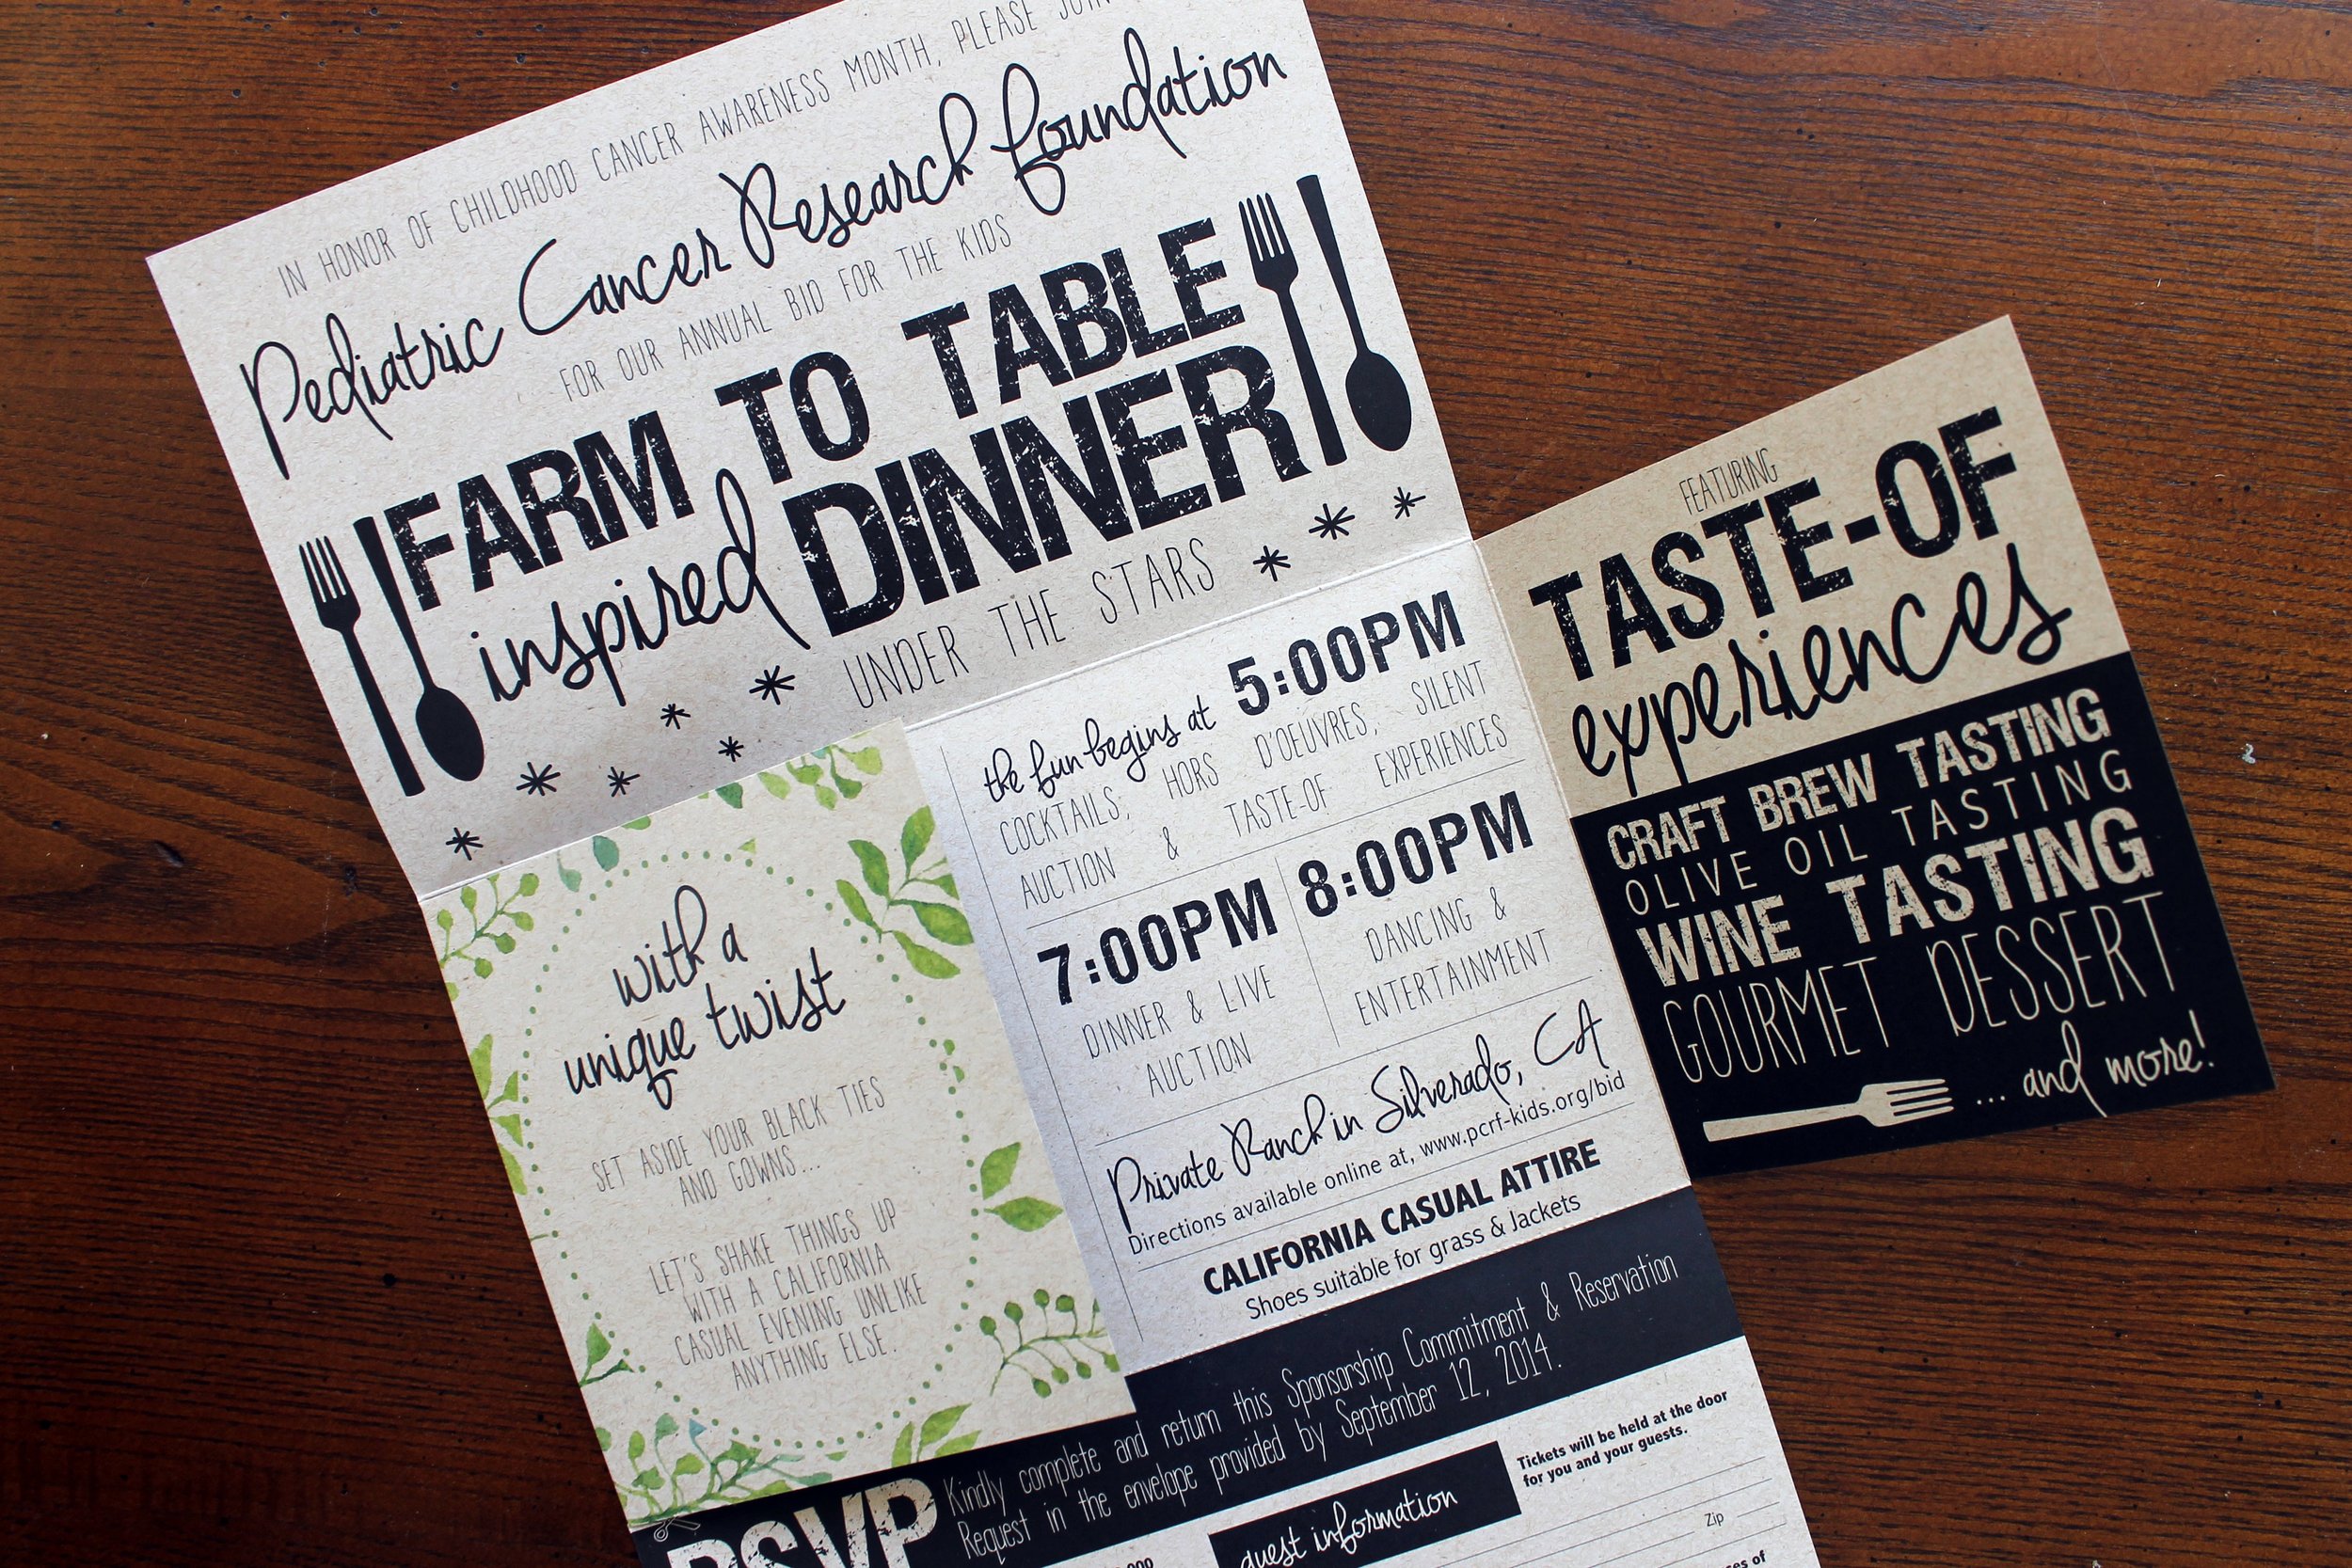 IN HONOR OF CHILDHOOD CANCER AWARENESS MONTH, PLEASE JOIN
Pediatric Cancer Research Foundation
FOR OUR ANNUAL BID FOR THE KIDS
FARM TO TABLE
inspired DINNER
UNDER THE STARS
with a
unique twist
SET ASIDE YOUR BLACK TIES
AND GOWNS...
LET'S SHAKE THINGS UP
WITH A CALIFORNIA
CASUAL EVENING UNLIKE
ANYTHING ELSE.
the fun begins at 5:00PM
COCKTAILS, HORS D'OEUVRES, SILENT
AUCTION & TASTE-OF EXPERIENCES
7:00PM
DINNER & LIVE
AUCTION
8:00PM
DANCING &
ENTERTAINMENT
Private Ranch in Silverado, CA
Directions available online at, www.pcrf-kids.org/bid
CALIFORNIA CASUAL ATTIRE
Shoes suitable for grass & Jackets
FEATURING
TASTE-OF
experiences
CRAFT BREW TASTING
OLIVE OIL TASTING
WINE TASTING
GOURMET DESSERT
... and more!
RSVP
Kindly complete and return this Sponsorship Commitment & Reservation
Request in the envelope provided by September 12, 2014.
guest information
Tickets will be held at the door
for you and your guests.
Zip